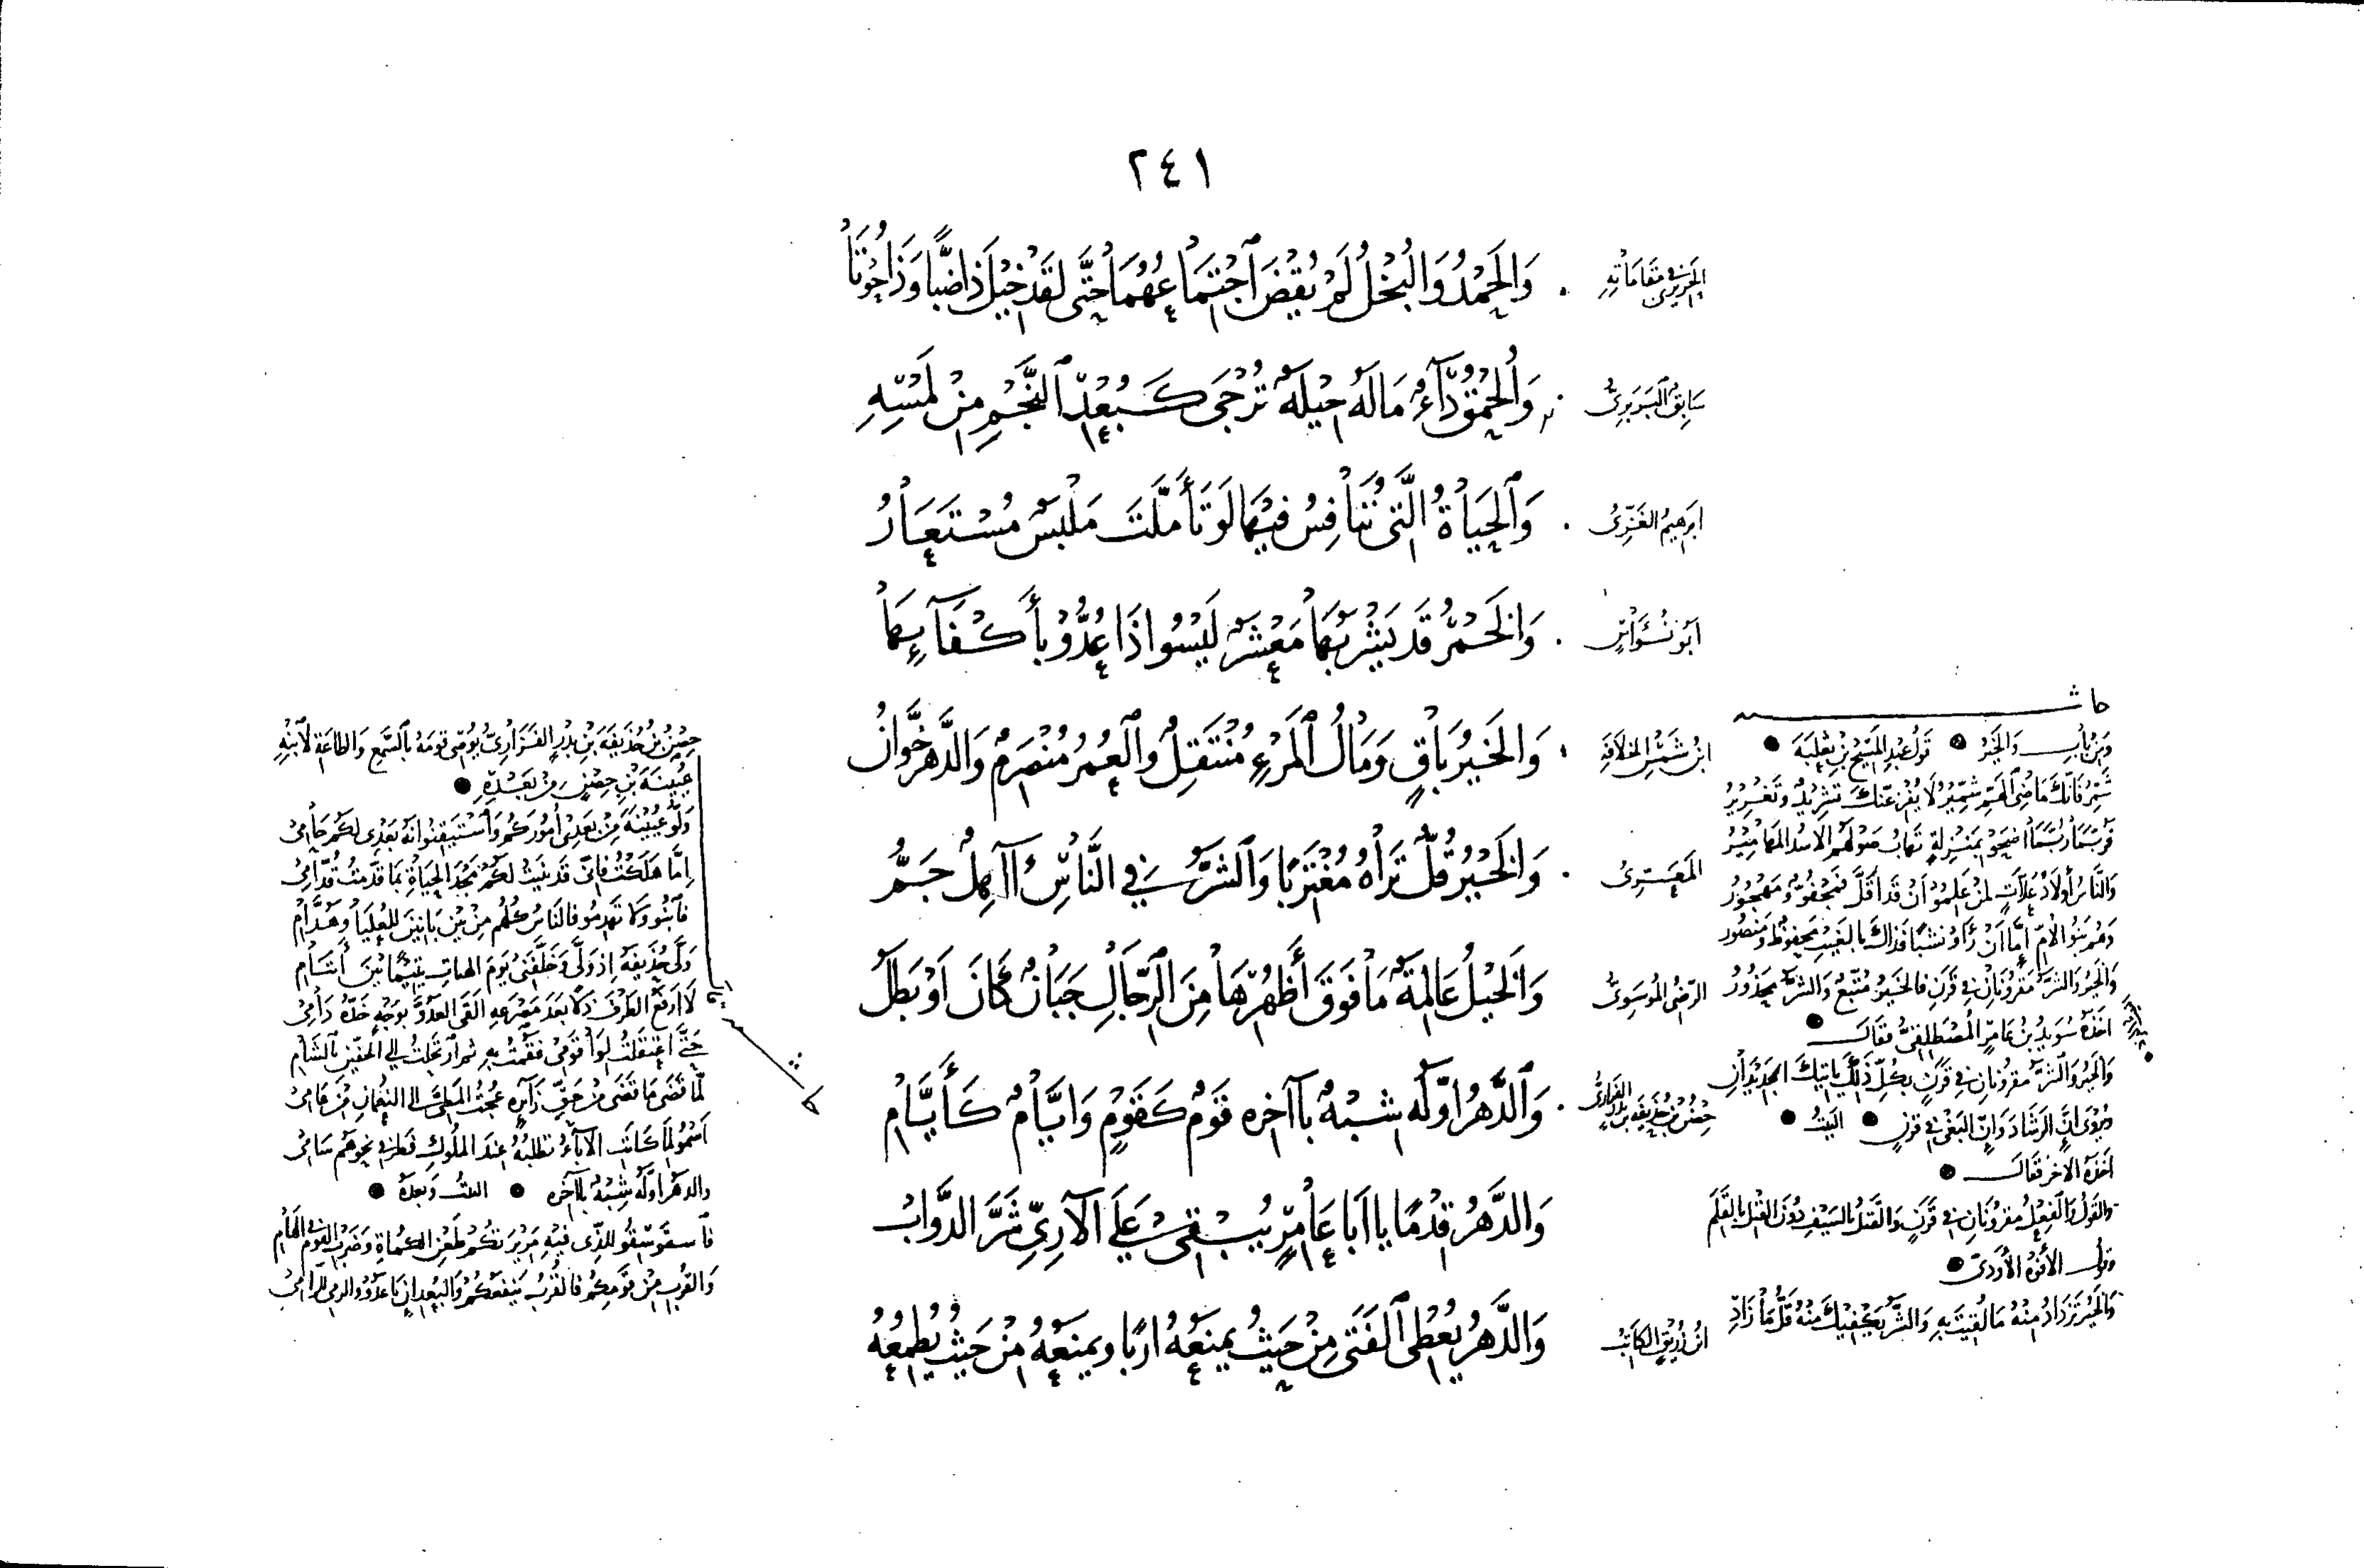 ٢٤١
الحريري في مقاماته . وَالحَمْدُ وَالبُخْلُ لَمْ يُقْضَ اجْتِمَاعُهُمَا حَتَّى لَقَدْ خِيْلَ ذَا ضَبًّا وَذَا حُوْتَا
سَابِقُ البَرْبَرِيُّ . وَالحُمْقُ دَآءٌ مَالَهُ حِيْلَةٌ تُرْجَى كَبُعْدِ النَّجْمِ مِنْ لَمْسِهِ
ابرهيم الغَزِّيُّ . وَالحَيَاةُ الَّتِي نُنَافِسُ فِيْهَا لَوْ تَأَمَّلْتَ مَلْبَسٌ مُسْتَعَارُ
أبُو نُوَاسٍ . وَالخَمْرُ قَد يَشْرَبُهَا مَعْشَرٌ لَيْسُوا اذَا عُدُّوْ بأَكْفَآئِهَا
ابنُ شَمْسِ الخِلَافَةِ . وَالخَيْرُ بَاقٍ وَمَالُ المَرْءِ مُنْتَقِلٌ والعُمْرُ مُنْصَرِمٌ وَالدَّهرُ خَوَّانُ
المَعَرِّيُّ . وَالخَيْرُ قَلَّ تَرَاهُ مُغْتَرَبًا وَالشَّرُّ فِي النَّاسِ آهِلٌ جَمُّ
الرَّضِيُّ المُوْسَوِيُّ وَالخَيْلُ عَالِمَةٌ مَا فَوْقَ أَظْهُرْهَا مِنَ الرِّجَالِ جَبَانٌ كَانَ اَوْ بَطَلُ
حِصْنُ بْنُ حُذَيفَةَ بنِ بَدْرٍ الفَزَارِيُّ . وَالدَّهرُ اوّلُهُ شِبْهٌ بآخِره قَوْمٌ كَقَوْمٍ وَايَّامٌ كَأَيَّامِ
وَالدَّهْرُ قِدْمًا يا اَبَا عَامِرٍ يُبْقِي عَلَى الآرِيِّ شَرَّ الدَّوَابْ
ابنُ زُرَيْقٍ الكَاتِبُ وَالدَّهرُ يُعْطِى الفَتَى مِنْ حَيثُ يمنَعُهُ اربًا ويمنَعُهُ مِنْ حَيثُ يُطمِعُهُ
حاشـــية
وَمِنْ بَابِ وَالخَيْرُ ● قَولُ عَبْدِ المَسِيْحِ بْنِ ثَعْلَبَةَ ●
شَمِّر فَانَّكَ مَاضِي الهَمِّ شِمِّيرُ لَا يُفْزِعَنَّكَ تَشْرِيْدٌ وَتَغْرِيْرُ
فَرُبَّمَا رُبَّمَا اضْحَوْ بِمَنْزِلَةٍ تَهَابُ صَوْلَهُمُ الاسْدُ المَهَاصِيْرُ
وَالنَّاسُ أَولَادُ عَلَّاتٍ لمَنْ عَلِمُوْ أَنْ قَد أَقَلَّ فَمَجْفُوٌّ وَمَهْجُوْرُ
وَهُمْ بَنُو الأُمِّ إِمَّا أَنْ رَأَوْ نَشَبًا فَذَاكَ بالغَيْبِ مَحْفُوظٌ وَمَنْصُورُ
وَالخَيْرُ وَالشَّرُّ مَقرُونَانِ فِي قَرَنٍ فالخَيْرُ مُتَّبَعٌ وَالشَّرُّ مَحْذُورُ
اخَذَهُ سُوَيدُ بْنُ عَامِرٍ المُصْطَلِقِيُّ فَقَالَ ●
وَالخَيْرُ وَالشَّرُّ مَقرُونَانِ فِي قَرَنٍ بِكُلِّ ذَلِكَ يَاتِيكَ الجَدِيْدَانِ
وَيُرْوَى انَّ الرَشَادَ وَانَّ البَغْيَ فِي قَرَنٍ ● البَيْتُ ●
اَخَذَهُ الاخَرُ فَقَالَ ●
وَالقَولُ وَالفِعْلُ مَقرُونَانِ فِي قَرَنٍ وَالقَتلُ بالسَّيفِ دُوْنَ القَتْلِ بالقَلَمِ
وَقولُ الأَفْوَهِ الأَوْدِيِّ ●
وَالخَيْرُ تَزْدَادُ مِنْهُ مَا لَقِيْتَ بِهِ وَالشَّرُّ يَكْفِيْكَ مِنْهُ قَلَّ مَا زَادِ
حِصْنُ بنُ حُذَيفَةَ بْنِ بَدْرٍ الفَزَارِيُّ يُوصِي قومَهُ بالسَّمعِ وَالطاعَةِ لابنِهِ
عُيَيْنَةَ بْنِ حِصْنٍ مِنْ بَعْدِهِ ●
وَلُّو عُيَيْنَةَ مِنْ بَعْدِي أُمُورَكُمُ وَاسْتَيْقِنُوا انَّهُ بَعْدِى لَكُم حَامِي
إمَّا هَلَكْتُ فَإِنِّي قَد بَنَيْتُ لَكُمْ مَجْدَ الحَيَاةِ بمَا قَدَّمتُ قُدَّامِي
فَابْنُو وَلا تَهدِمُو فالنَاسُ كُلُّهُم مِنْ بَيْنِ بَانِيْنَ لِلعُليَا وَهَدَّامِ
وَلَّى حُذَيفَةُ إِذ وَلَّى وَخَلَّفَنِي يَومَ الهباتِ يَتِيْمًا بَيْنَ أَيْتَامِ
لَا ارفَعُ الطَّرْفَ ذُلًّا بَعْدَ مَصْرَعِهِ القَى العدُوَّ بوَجْهٍ خَدُّهُ دَامِي
حَتَّى اعتَقَلتُ لِوا قَومِي فَقُمتُ بِهِ ثم ارتَحَلتُ إِلى الجَفْنِيِّ بالشَّامِ
لمَّا قَضَى مَا قَضَى مِنْ حَقِّ زَآئِرِهِ عُجْتُ المَطِيَّ الى النُّعْمَانِ مِنْ عَامِي
اَسْمُو لِمَا كَانَتِ الآبَآءُ تَطلُبُهُ عِندَ المُلُوكِ فَطَرفِي نَحوَهُم سَامِي
والدهرُ اوّلهُ شِبْهٌ بآخِره ● البيت وَبَعدَهُ ●
وَالقُربُ مِنْ قَومِكُم فالقُربُ يَنفَعُكُمْ وَالبُعدُ انْ بَاعَدُوْ والرمي للرَّامِي